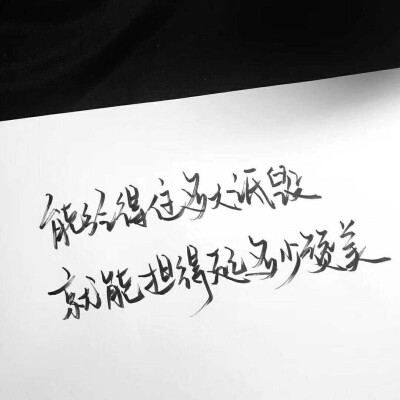 能经得住多大诋毁
就能担得起多少赞美